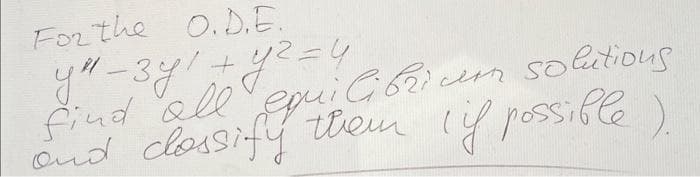 For the O.D.E.
y'' - 3y' + y² = 4
find all equilibrium solutions
and classify them (if possible).